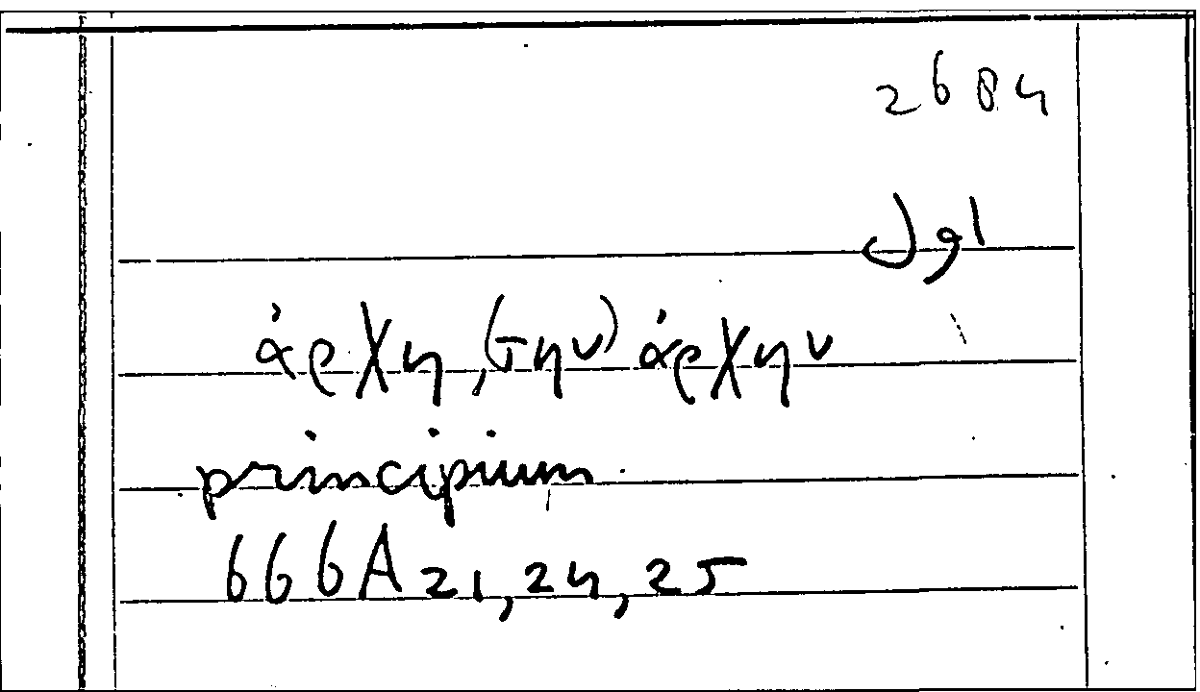 2684
Jgl
ἀρχη, (την) ἀρχην
principium
666A21,24,25